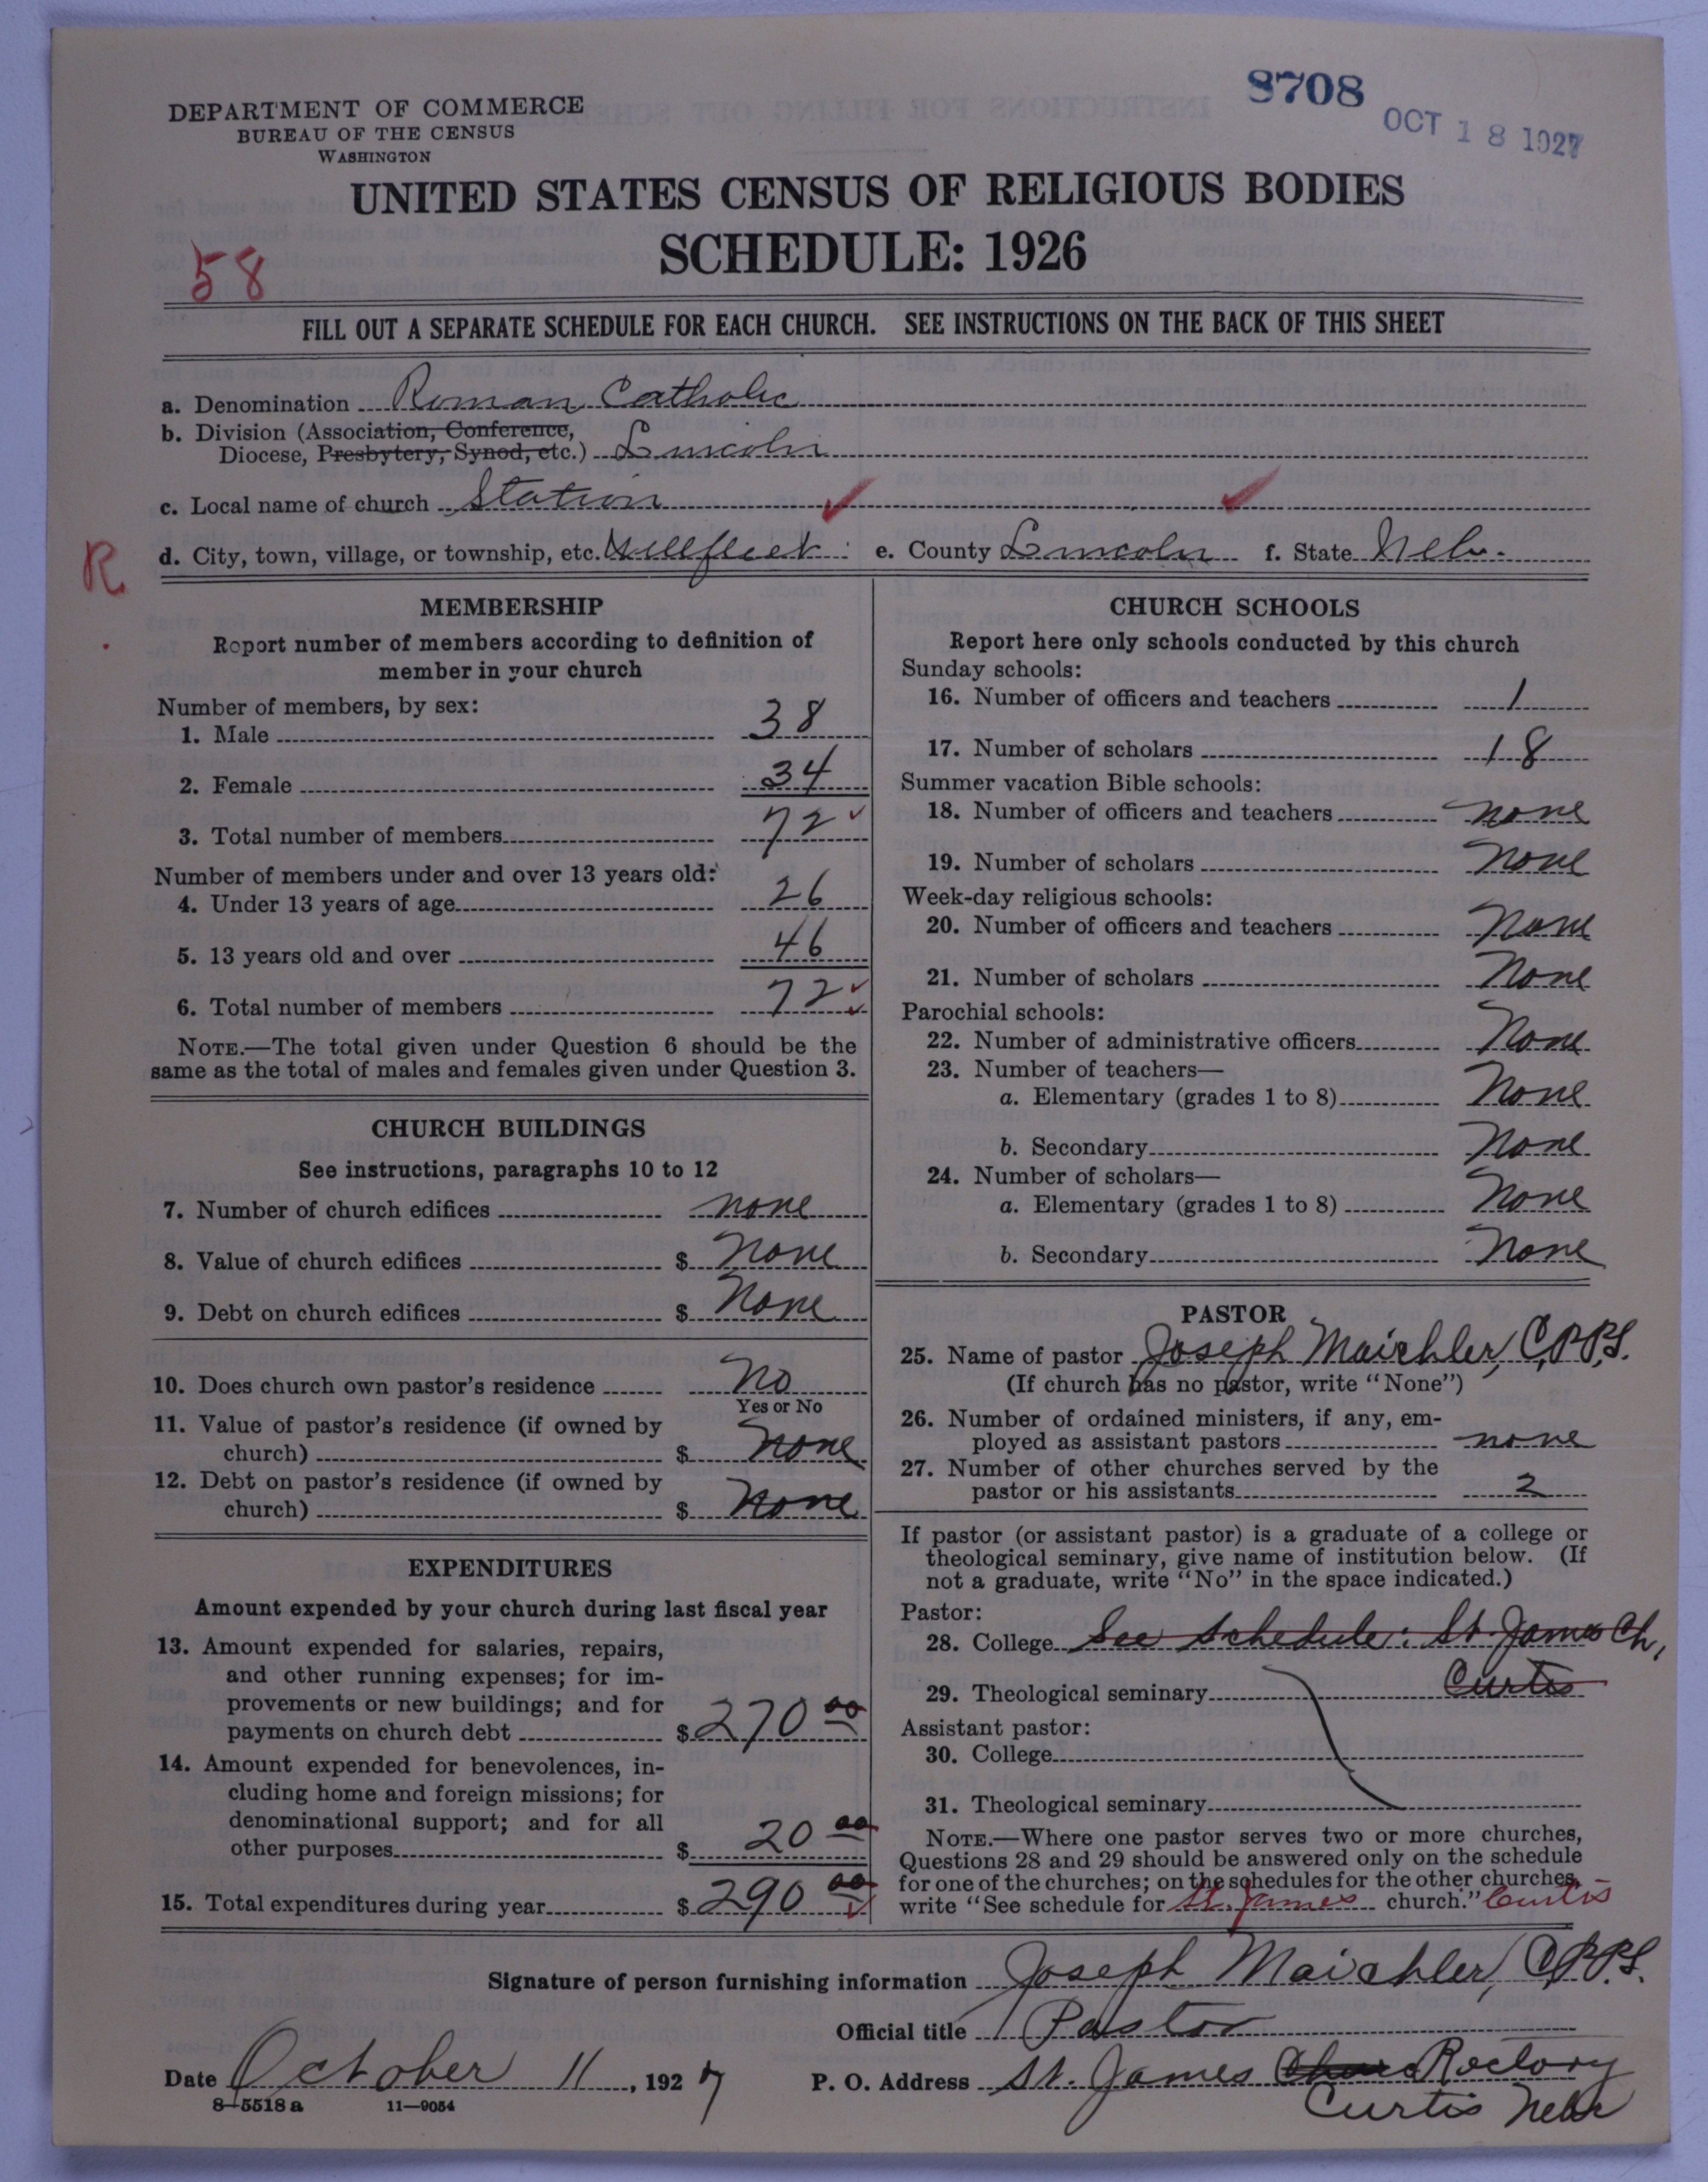 8708
OCT 18 1927
DEPARTMENT OF COMMERCE
BUREAU OF THE CENSUS
WASHINGTON
UNITED STATES CENSUS OF RELIGIOUS BODIES
SCHEDULE: 1926
58
FILL OUT A SEPARATE SCHEDULE FOR EACH CHURCH. SEE INSTRUCTIONS ON THE BACK OF THIS SHEET
a. Denomination Roman Catholic
b. Division (Association, Conference,
Diocese, Presbytery, Synod, etc.) Lincoln
c. Local name of church Station
R
d. City, town, village, or township, etc. Wellfleet e. County Lincoln f. State Nebr.
MEMBERSHIP
Report number of members according to definition of
member in your church
Number of members, by sex:
1. Male 38
2. Female 34
3. Total number of members 72
Number of members under and over 13 years old:
4. Under 13 years of age 26
5. 13 years old and over 46
6. Total number of members 72
NOTE.—The total given under Question 6 should be the
same as the total of males and females given under Question 3.
CHURCH BUILDINGS
See instructions, paragraphs 10 to 12
7. Number of church edifices none
8. Value of church edifices $ None
9. Debt on church edifices $ None
10. Does church own pastor's residence No
Yes or No
11. Value of pastor's residence (if owned by
church) $ None
12. Debt on pastor's residence (if owned by
church) $ None
EXPENDITURES
Amount expended by your church during last fiscal year
13. Amount expended for salaries, repairs,
and other running expenses; for im-
provements or new buildings; and for
payments on church debt $ 270 00
14. Amount expended for benevolences, in-
cluding home and foreign missions; for
denominational support; and for all
other purposes $ 20 00
15. Total expenditures during year $ 290 00
CHURCH SCHOOLS
Report here only schools conducted by this church
Sunday schools:
16. Number of officers and teachers 1
17. Number of scholars 18
Summer vacation Bible schools:
18. Number of officers and teachers none
19. Number of scholars None
Week-day religious schools:
20. Number of officers and teachers None
21. Number of scholars None
Parochial schools:
22. Number of administrative officers None
23. Number of teachers—
a. Elementary (grades 1 to 8) None
b. Secondary None
24. Number of scholars—
a. Elementary (grades 1 to 8) None
b. Secondary None
PASTOR
25. Name of pastor Joseph Maichler, C.PP.S.
(If church has no pastor, write "None")
26. Number of ordained ministers, if any, em-
ployed as assistant pastors none
27. Number of other churches served by the
pastor or his assistants 2
If pastor (or assistant pastor) is a graduate of a college or
theological seminary, give name of institution below. (If
not a graduate, write "No" in the space indicated.)
Pastor:
28. College See schedule: St. James Ch,
29. Theological seminary Curtis
Assistant pastor:
30. College
31. Theological seminary
NOTE.—Where one pastor serves two or more churches,
Questions 28 and 29 should be answered only on the schedule
for one of the churches; on the schedules for the other churches,
write "See schedule for St. James church." Curtis
Signature of person furnishing information Joseph Maichler, C.PP.S.
Official title Pastor
Date October 11, 1927 P. O. Address St. James Rectory
8-5518a 11-9054 Curtis Nebr